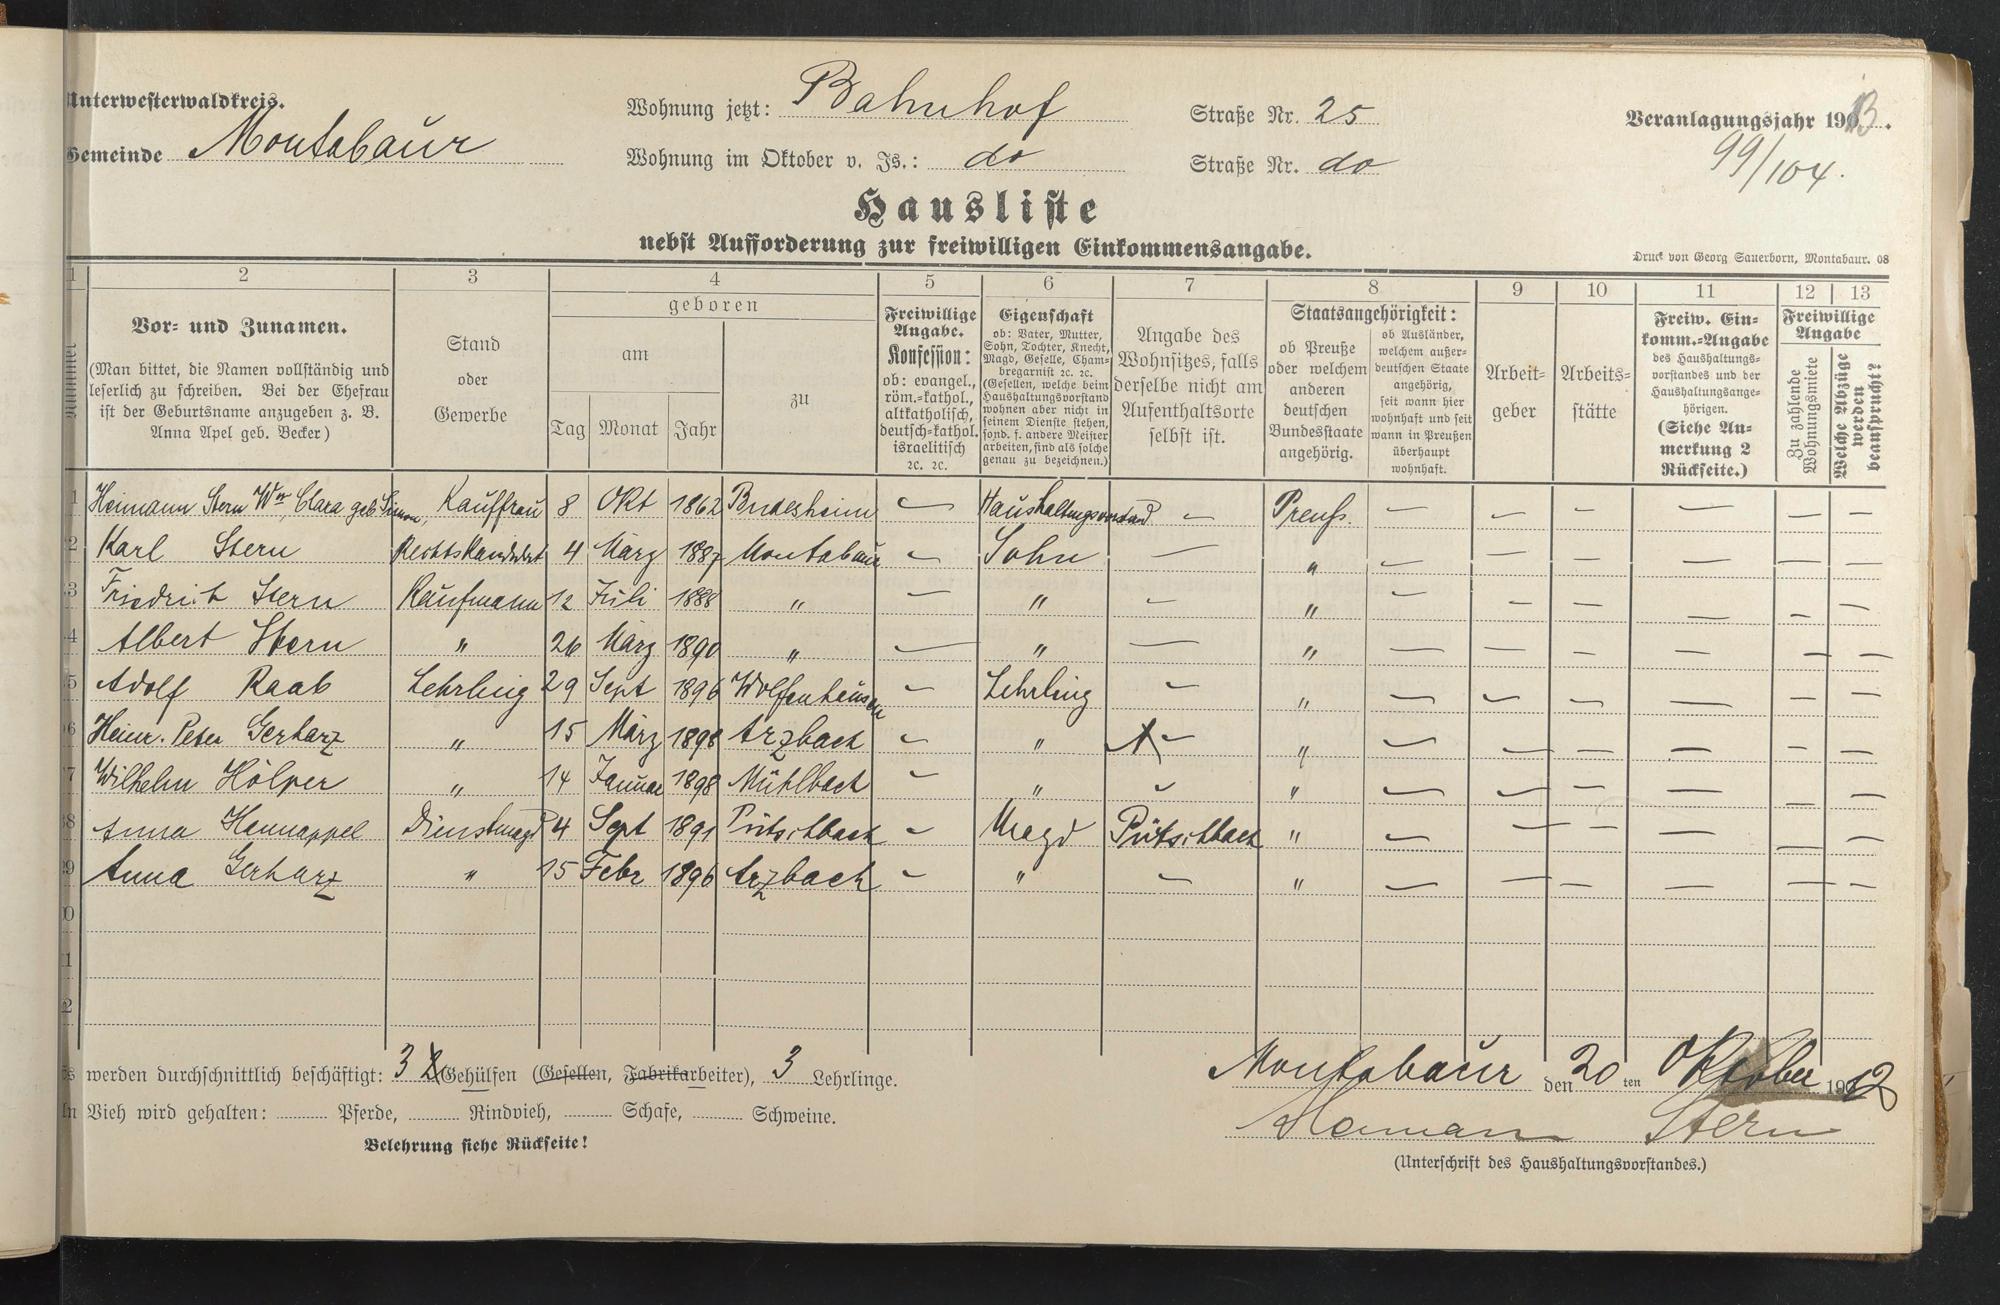 Unterwesterwaldkreis.
Gemeinde Montabaur
Wohnung jetzt: Bahnhof Straße Nr. 25
Wohnung im Oktober v. Js.: do Straße Nr. do
Veranlagungsjahr 1913.
99/104.
Hausliste
nebst Aufforderung zur freiwilligen Einkommensangabe.
Druck von Georg Sauerborn, Montabaur. 08
1 2 3 4 5 6 7 8 9 10 11 12 13
Nummer
Vor- und Zunamen.
(Man bittet, die Namen vollständig und
leserlich zu schreiben. Bei der Ehefrau
ist der Geburtsname anzugeben z. B.
Anna Apel geb. Becker)
Stand
oder
Gewerbe
geboren
am
Tag Monat Jahr
zu
Freiwillige
Angabe.
Konfession:
ob: evangel.,
röm.-kathol.,
altkatholisch,
deutsch-kathol.
israelitisch
ꝛc. ꝛc.
Eigenschaft
ob: Vater, Mutter,
Sohn, Tochter, Knecht,
Magd, Geselle, Cham-
bregarnist ꝛc. ꝛc.
(Gesellen, welche beim
Haushaltungsvorstand
wohnen aber nicht in
seinem Dienste stehen,
sond. f. andere Meister
arbeiten, sind als solche
genau zu bezeichnen.)
Angabe des
Wohnsitzes, falls
derselbe nicht am
Aufenthaltsorte
selbst ist.
Staatsangehörigkeit:
ob Preuße
oder welchem
anderen
deutschen
Bundesstaate
angehörig.
ob Ausländer,
welchem außer-
deutschen Staate
angehörig,
seit wann hier
wohnhaft und seit
wann in Preußen
überhaupt
wohnhaft.
Arbeit-
geber
Arbeits-
stätte
Freiw. Ein-
komm.-Angabe
des Haushaltungs-
vorstandes und der
Haushaltungsange-
hörigen.
(Siehe An-
merkung 2
Rückseite.)
Freiwillige
Angabe
Zu zahlende
Wohnungsmiete
Welche Abzüge
werden
beansprucht?
1 Heimann Stern Wwe, Clara geb. Simon, Kauffrau 8 Okt 1862 Budesheim — Haushaltungsvorstand — Preuß. — — — — — —
2 Karl Stern Rechtskandidat 4 März 1887 Montabaur — Sohn — " — — — — — —
3 Friedrich Stern Kaufmann 12 Juli 1888 " — " — " — — — — — —
4 Albert Stern " 26 März 1890 " — " — " — — — — — —
5 Adolf Raab Lehrling 29 Sept 1896 Wolfenhausen — Lehrling — " — — — — — —
6 Heinr. Peter Gerharz " 15 März 1898 Arzbach — " — " — — — — — —
7 Wilhelm Hölper " 14 Januar 1898 Mühlbach — " — " — — — — — —
8 Anna Hannappel Dienstmagd 4 Sept 1891 Pütschbach — Magd Pütschbach " — — — — — —
9 Anna Gerharz " 15 Febr 1896 Arzbach — " — " — — — — — —
0
1
2
Es werden durchschnittlich beschäftigt: 3 2 Gehülfen (Gesellen, Fabrikarbeiter), 3 Lehrlinge.
An Vieh wird gehalten: Pferde, Rindvieh, Schafe, Schweine.
Belehrung siehe Rückseite!
Montabaur den 20ten Oktober 1912
Heimann Stern
(Unterschrift des Haushaltungsvorstandes.)